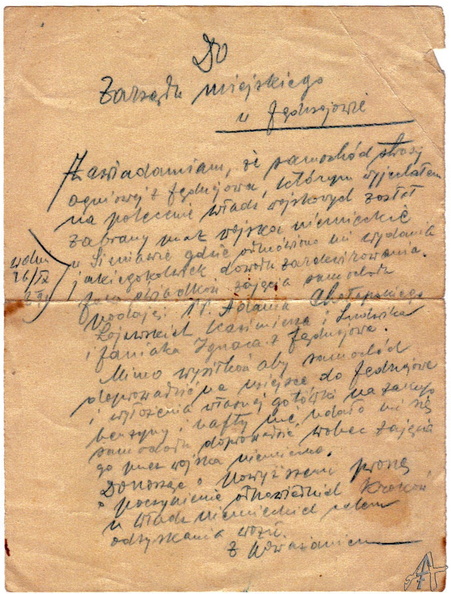 Do
Zarządu miejskiego
w Jędrzejowie
Zawiadamiam, że samochód straży
ogniowej z Jędrzejowa, którym wyjechałem
na polecenie władz wojskowych został
zabrany przez wojska niemieckie
w Sieniawie gdzie odmówiono mi wydania
jakiegokolwiek dowodu zarekwirowania.
w dniu
26/IX
Jako świadków zajęcia samochodu
podaję: pp. Adama
Kazimierza i Ludwika
i Janiaka Ignaca z Jędrzejowa.
Mimo wysiłków aby samochód
doprowadzić na miejsce do Jędrzejowa
i wyłożenia własnej gotówki na zakup
benzyny i nafty nie udało mi się
samochodu doprowadzić wobec zajęcia
go przez wojska niemieckie.
Donosząc o powyższem proszę
o poczynienie odpowiednich kroków
u władz niemieckich celem
odzyskania wozu.
Z poważaniem